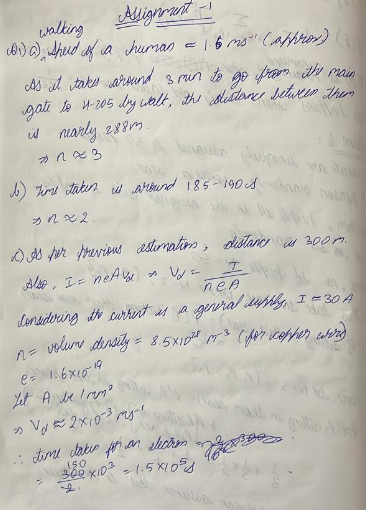 Assignment -1
walking
Q1) a) Speed of a human = 1.6 ms⁻¹ (approx)
As it takes around 3 min to go from the main
gate to H-205 by walk, the distance between them
is nearly 288m.
⇒ n ≈ 3
b) Time taken is around 185-190 s
⇒ n ≈ 2.
c) As per previous estimation, distance is 300m.
Also, I = neAVd ⇒ Vd = I/neA
Considering the current is a general supply, I = 30 A
n = volume density = 8.5×10²⁸ m⁻³ (for copper wire)
e = 1.6×10⁻¹⁹
Let A be 1mm²
⇒ Vd ≈ 2×10⁻³ ms⁻¹
∴ time taken for an electron =
= 300/2 ×10³ = 1.5×10⁵ s
150